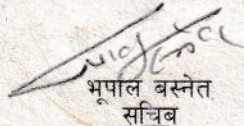 भूपाल बस्नेत
सचिब